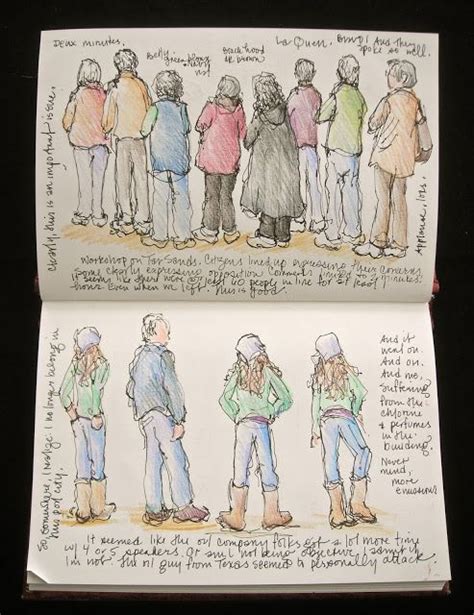 Deux minutes.
Betty.
green & brown
vest
Black hood
La Queen.
Bravo! And they
spoke so well.
Clearly, this is an important issue.
Applause, lots.
Workshop on Tar Sands. Citizens lined up expressing their concerns
Some clearly expressing opposition. Comments limited to 2 minutes.
Seems like there were at least 40 people in line for at least
hour. Even when we left. This is good.
So somewhere, I realize: I no longer belong in
this port city.
And it
went on.
And on.
And me,
suffering
from the
chlorine
& perfumes
in the
building.
Never
mind,
more
emissions
It seemed like the oil company folks got a lot more time
w/ 4 or 5 speakers. Or am I not being objective, I admit it
I'm not. The oil guy from Texas seemed to personally attack.